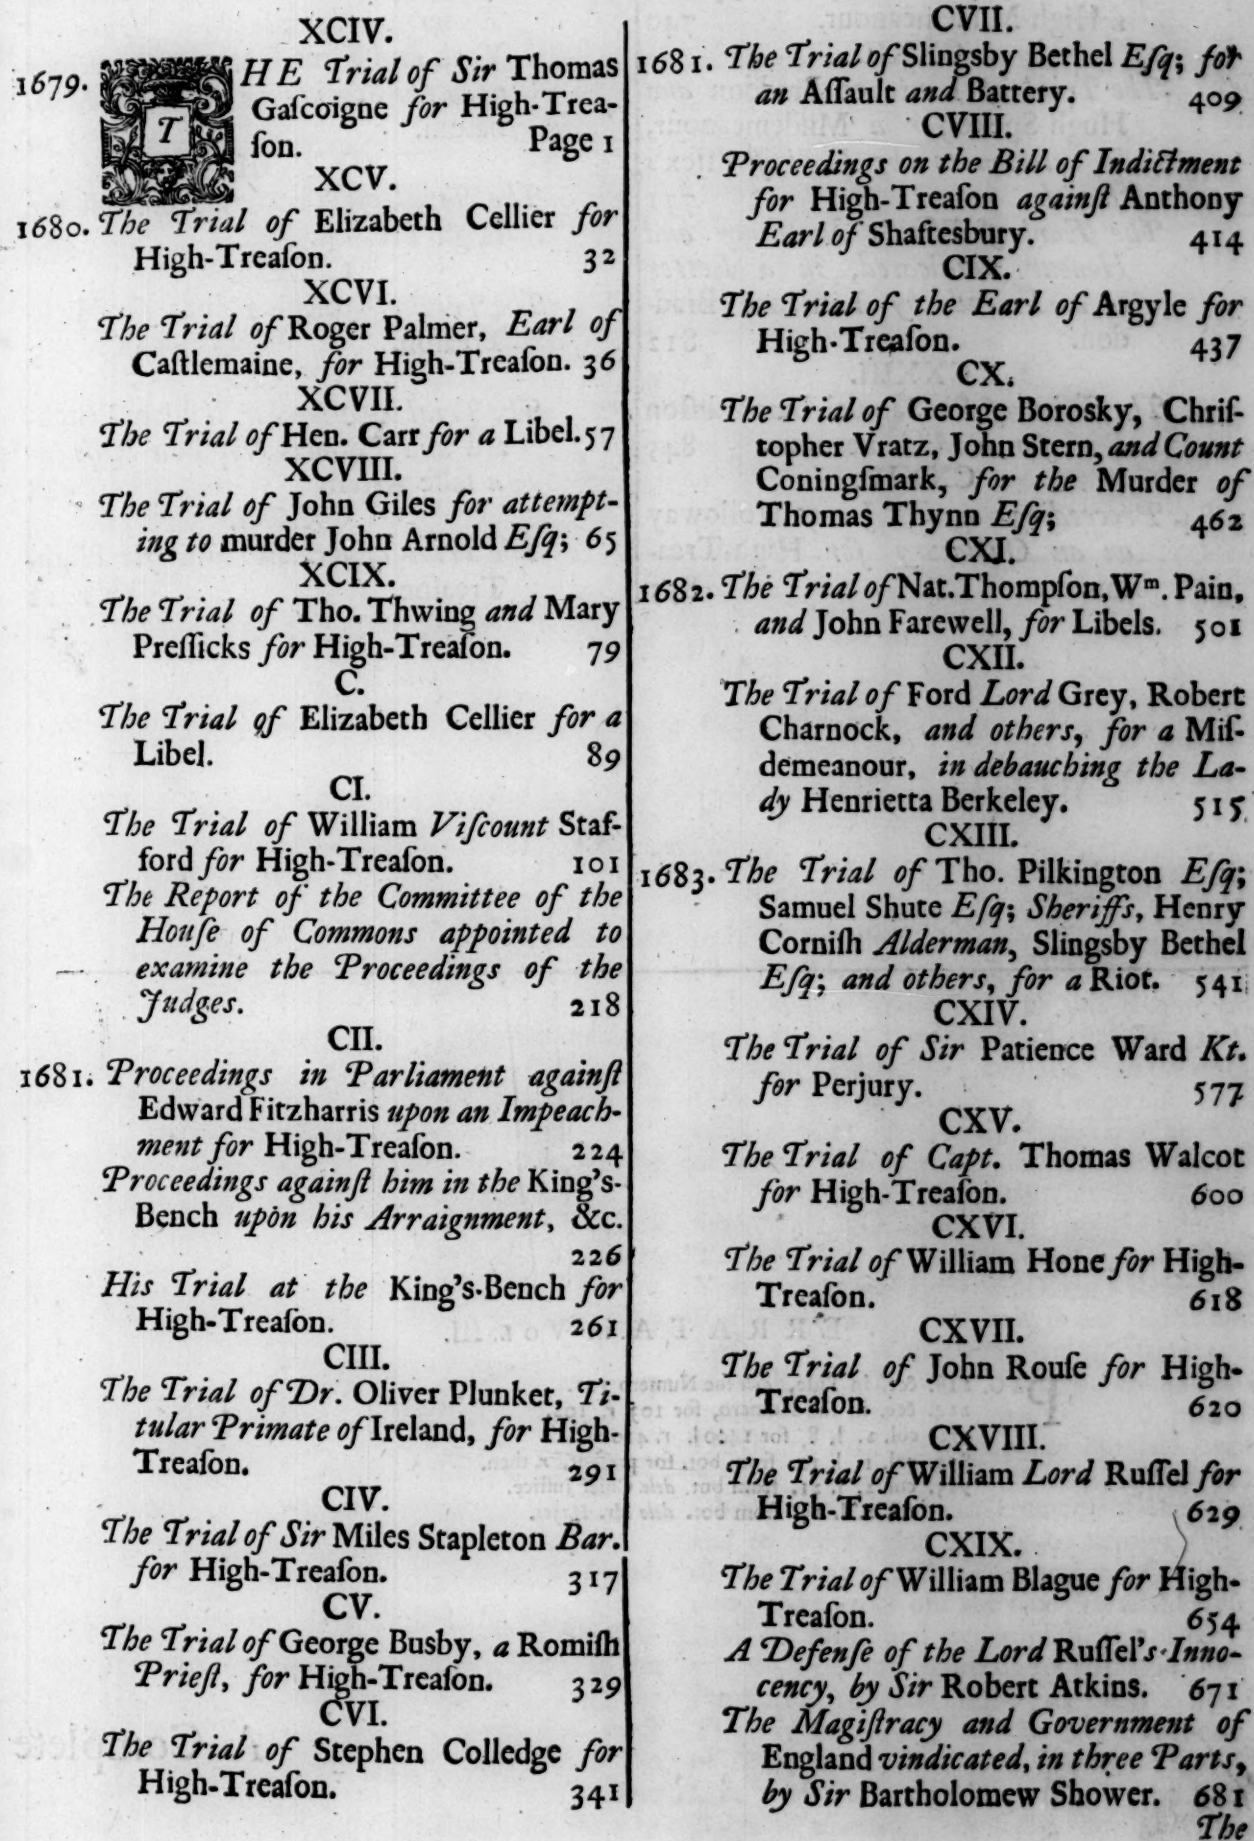 XCIV.
1679. THE Trial of Sir Thomas
Gaſcoigne for High-Trea-
ſon. Page 1
XCV.
1680. The Trial of Elizabeth Cellier for
High-Treaſon. 32
XCVI.
The Trial of Roger Palmer, Earl of
Caſtlemaine, for High-Treaſon. 36
XCVII.
The Trial of Hen. Carr for a Libel. 57
XCVIII.
The Trial of John Giles for attempt-
ing to murder John Arnold Eſq; 65
XCIX.
The Trial of Tho. Thwing and Mary
Preſſicks for High-Treaſon. 79
C.
The Trial of Elizabeth Cellier for a
Libel. 89
CI.
The Trial of William Viſcount Staf-
ford for High-Treaſon. 101
The Report of the Committee of the
Houſe of Commons appointed to
examine the Proceedings of the
Judges. 218
CII.
1681. Proceedings in Parliament againſt
Edward Fitzharris upon an Impeach-
ment for High-Treaſon. 224
Proceedings againſt him in the King's-
Bench upon his Arraignment, &c.
226
His Trial at the King's-Bench for
High-Treaſon. 261
CIII.
The Trial of Dr. Oliver Plunket, Ti-
tular Primate of Ireland, for High-
Treaſon. 291
CIV.
The Trial of Sir Miles Stapleton Bar.
for High-Treaſon. 317
CV.
The Trial of George Busby, a Romiſh
Prieſt, for High-Treaſon. 329
CVI.
The Trial of Stephen Colledge for
High-Treaſon. 341
CVII.
1681. The Trial of Slingsby Bethel Eſq; for
an Aſſault and Battery. 409
CVIII.
Proceedings on the Bill of Indictment
for High-Treaſon againſt Anthony
Earl of Shaftesbury. 414
CIX.
The Trial of the Earl of Argyle for
High-Treaſon. 437
CX.
The Trial of George Borosky, Chriſ-
topher Vratz, John Stern, and Count
Coningſmark, for the Murder of
Thomas Thynn Eſq; 462
CXI.
1682. The Trial of Nat. Thompſon, Wm. Pain,
and John Farewell, for Libels. 501
CXII.
The Trial of Ford Lord Grey, Robert
Charnock, and others, for a Miſ-
demeanour, in debauching the La-
dy Henrietta Berkeley. 515
CXIII.
1683. The Trial of Tho. Pilkington Eſq;
Samuel Shute Eſq; Sheriffs, Henry
Corniſh Alderman, Slingsby Bethel
Eſq; and others, for a Riot. 541
CXIV.
The Trial of Sir Patience Ward Kt.
for Perjury. 577
CXV.
The Trial of Capt. Thomas Walcot
for High-Treaſon. 600
CXVI.
The Trial of William Hone for High-
Treaſon. 618
CXVII.
The Trial of John Rouſe for High-
Treaſon. 620
CXVIII.
The Trial of William Lord Ruſſel for
High-Treaſon. 629
CXIX.
The Trial of William Blague for High-
Treaſon. 654
A Defenſe of the Lord Ruſſel's Inno-
cency, by Sir Robert Atkins. 671
The Magiſtracy and Government of
England vindicated, in three Parts,
by Sir Bartholomew Shower. 681
The